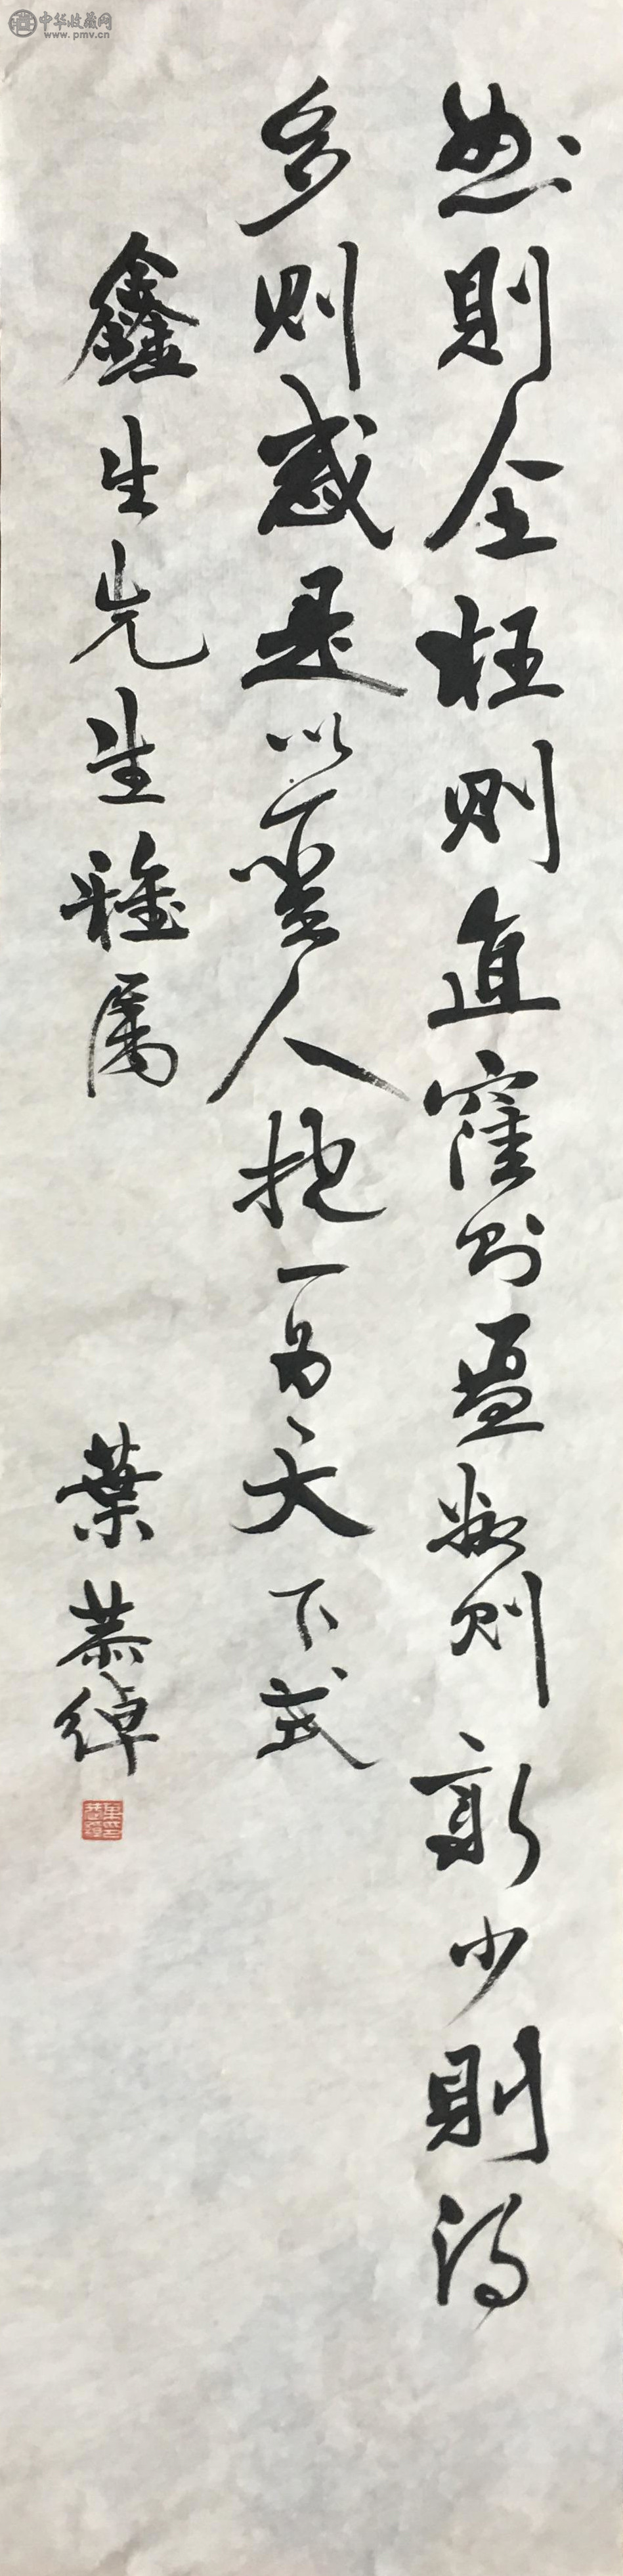 中华收藏网
www.pmv.cn
則全枉則直窪則盈敝則新少則得
多則惑是以聖人抱一為天下式
鑫生先生雅属
葉恭綽